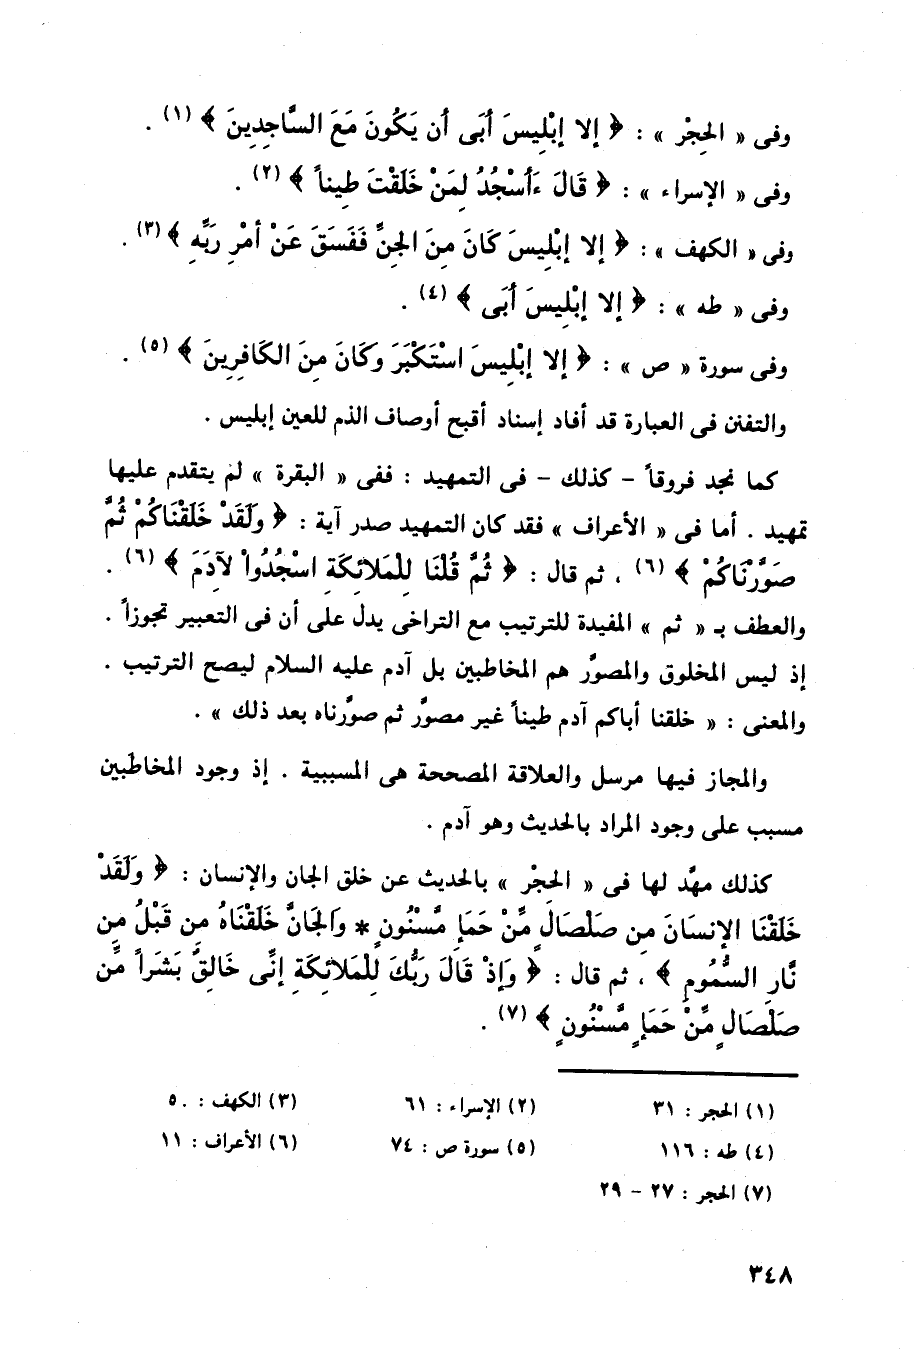 وفى « الحِجْر » : ﴿ إلا إبْلِيسَ أَبَى أن يَكُونَ مَعَ السَّاجِدِينَ ﴾ (١) .
وفى « الإسراء » : ﴿ قَالَ ءَأَسْجُدُ لِمَنْ خَلَقْتَ طِيناً ﴾ (٢) .
وفى « الكهف » : ﴿ إلا إبْلِيسَ كَانَ مِنَ الجِنِّ فَفَسَقَ عَنْ أمْرِ رَبِّهِ ﴾ (٣) .
وفى « طه » : ﴿ إلا إبْلِيسَ أَبَى ﴾ (٤) .
وفى سورة « ص » : ﴿ إلا إبْلِيسَ اسْتَكْبَرَ وَكَانَ مِنَ الكَافِرِينَ ﴾ (٥) .
والتفنن فى العبارة قد أفاد إسناد أقبح أوصاف الذم للعين إبليس .
كما نجد فروقاً – كذلك – فى التمهيد : ففى « البقرة » لم يتقدم عليها
تمهيد . أما فى « الأعراف » فقد كان التمهيد صدر آية : ﴿ وَلَقَدْ خَلَقْنَاكُمْ ثُمَّ
صَوَّرْنَاكُمْ ﴾ (٦) ، ثم قال : ﴿ ثُمَّ قُلْنَا لِلْمَلائِكَةِ اسْجُدُواْ لآدَمَ ﴾ (٦) .
والعطف بـ « ثم » المفيدة للترتيب مع التراخى يدل على أن فى التعبير تجوزاً .
إذ ليس المخلوق والمصوَّر هم المخاطبين بل آدم عليه السلام ليصح الترتيب .
والمعنى : « خلقنا أباكم آدم طيناً غير مصوَّر ثم صوَّرناه بعد ذلك » .
والمجاز فيها مرسل والعلاقة المصححة هى المسببية . إذ وجود المخاطَبين
مسبب على وجود المراد بالحديث وهو آدم .
كذلك مهَّد لها فى « الحِجْر » بالحديث عن خلق الجان والإنسان : ﴿ وَلَقَدْ
خَلَقْنَا الإنسَانَ مِن صَلْصَالٍ مِّنْ حَمَإٍ مَّسْنُونٍ * وَالجَانَّ خَلَقْنَاهُ مِن قَبْلُ مِن
نَّارِ السَّمُومِ ﴾ ، ثم قال : ﴿ وَإذْ قَالَ رَبُّكَ لِلْمَلائِكَةِ إنِّى خَالِقٌ بَشَراً مِّن
صَلْصَالٍ مِّنْ حَمَإٍ مَّسْنُونٍ ﴾ (٧) .
(١) الحجر : ٣١ (٢) الإسراء : ٦١ (٣) الكهف : ٥٠
(٤) طه : ١١٦ (٥) سورة ص : ٧٤ (٦) الأعراف : ١١
(٧) الحجر : ٢٧ – ٢٩
٣٤٨